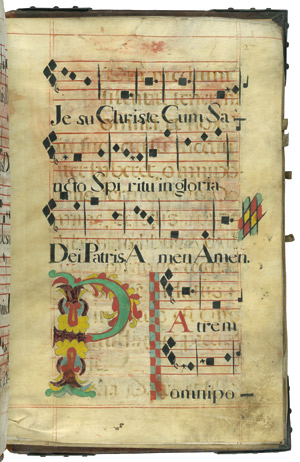 Je su Christe. Cum Sa-
ncto Spi ritu in gloria
Dei Patris. A men Amen.
P
A trem
omnipo-